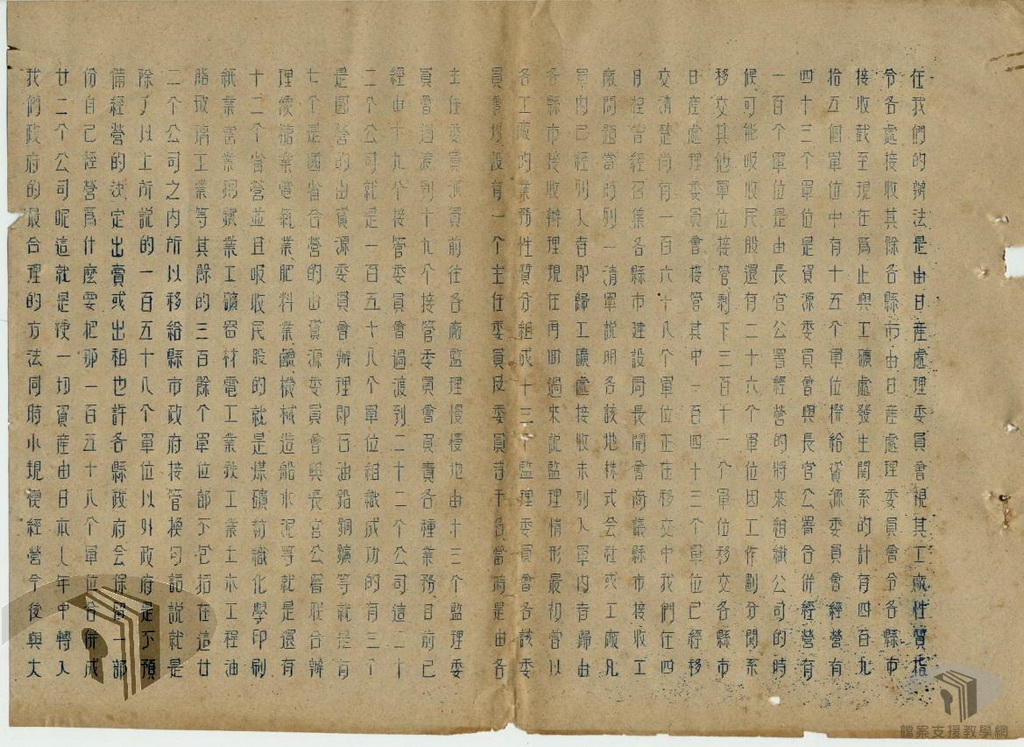 在我們的辦法是由日產處理委員會視其工廠性質指
令各處接收其餘各縣市由日產處理委員會令各縣市
接收截至現在為止與工礦處發生關系的計有四百九
拾五個單位中有十五個單位撥給資源委員會經營有
四十三個單位是資源委員會與長官公署合併經營有
一百個單位是由長官公署經營的將來組織公司的時
候可能吸收民股還有二十六個單位因工作劃分關系
移交其他單位接管剩下三百十一個單位移交各縣市
日產處理委員會接管其中一百四十三個單位已經移
交清楚尚有一百六十八個單位正在移交中我們在四
月裡曾經召集各縣市建設局長開會商議縣市接收工
廠問題當時列一清單說明各該地株式会社或工廠凡
單內已經列入者即歸工礦處接收未列入單內者歸由
各縣市接收辦理現在再回過來說監理情形最初當以
各工廠的業務性質分組成十三個監理委員會各該委
員會均設有一個主任委員及委員若干名當時是由各
主任委員派員前往各廠監理慢慢地由十三個監理委
員會過渡到十九個接管委員會負責各種業務目前已
經由十九個接管委員會過渡到二十二個公司這二十
二個公司就是一百五十八個單位組織成功的有三個
是國營的由資源委員會辦理即石油鋁銅鑛等就是有
七個是國省合營的由資源委員會與長官公署聯合辦
理使糖業電氣業肥料業鹼機械造船水泥等就是還有
十二個省營並且吸收民股的就是煤礦紡織化學印刷
紙業窯業鋼鐵業工礦器材電工業教工業土木工程油
脂玻璃工業等其餘的三百餘個單位都不包括在這廿
二個公司之內所以移給縣市政府接管換句話說就是
除了以上所說的一百五十八個單位以外政府是不預
備經營的決定出賣或出租也許各縣政府会保留一部
份自己經營為什麼要把那一百五十八個單位合併成
廿二個公司呢這就是使一切資產由日本人手中轉入
我們政府的最合理的方法同時小規便經營今後與大
檔案支援教學網